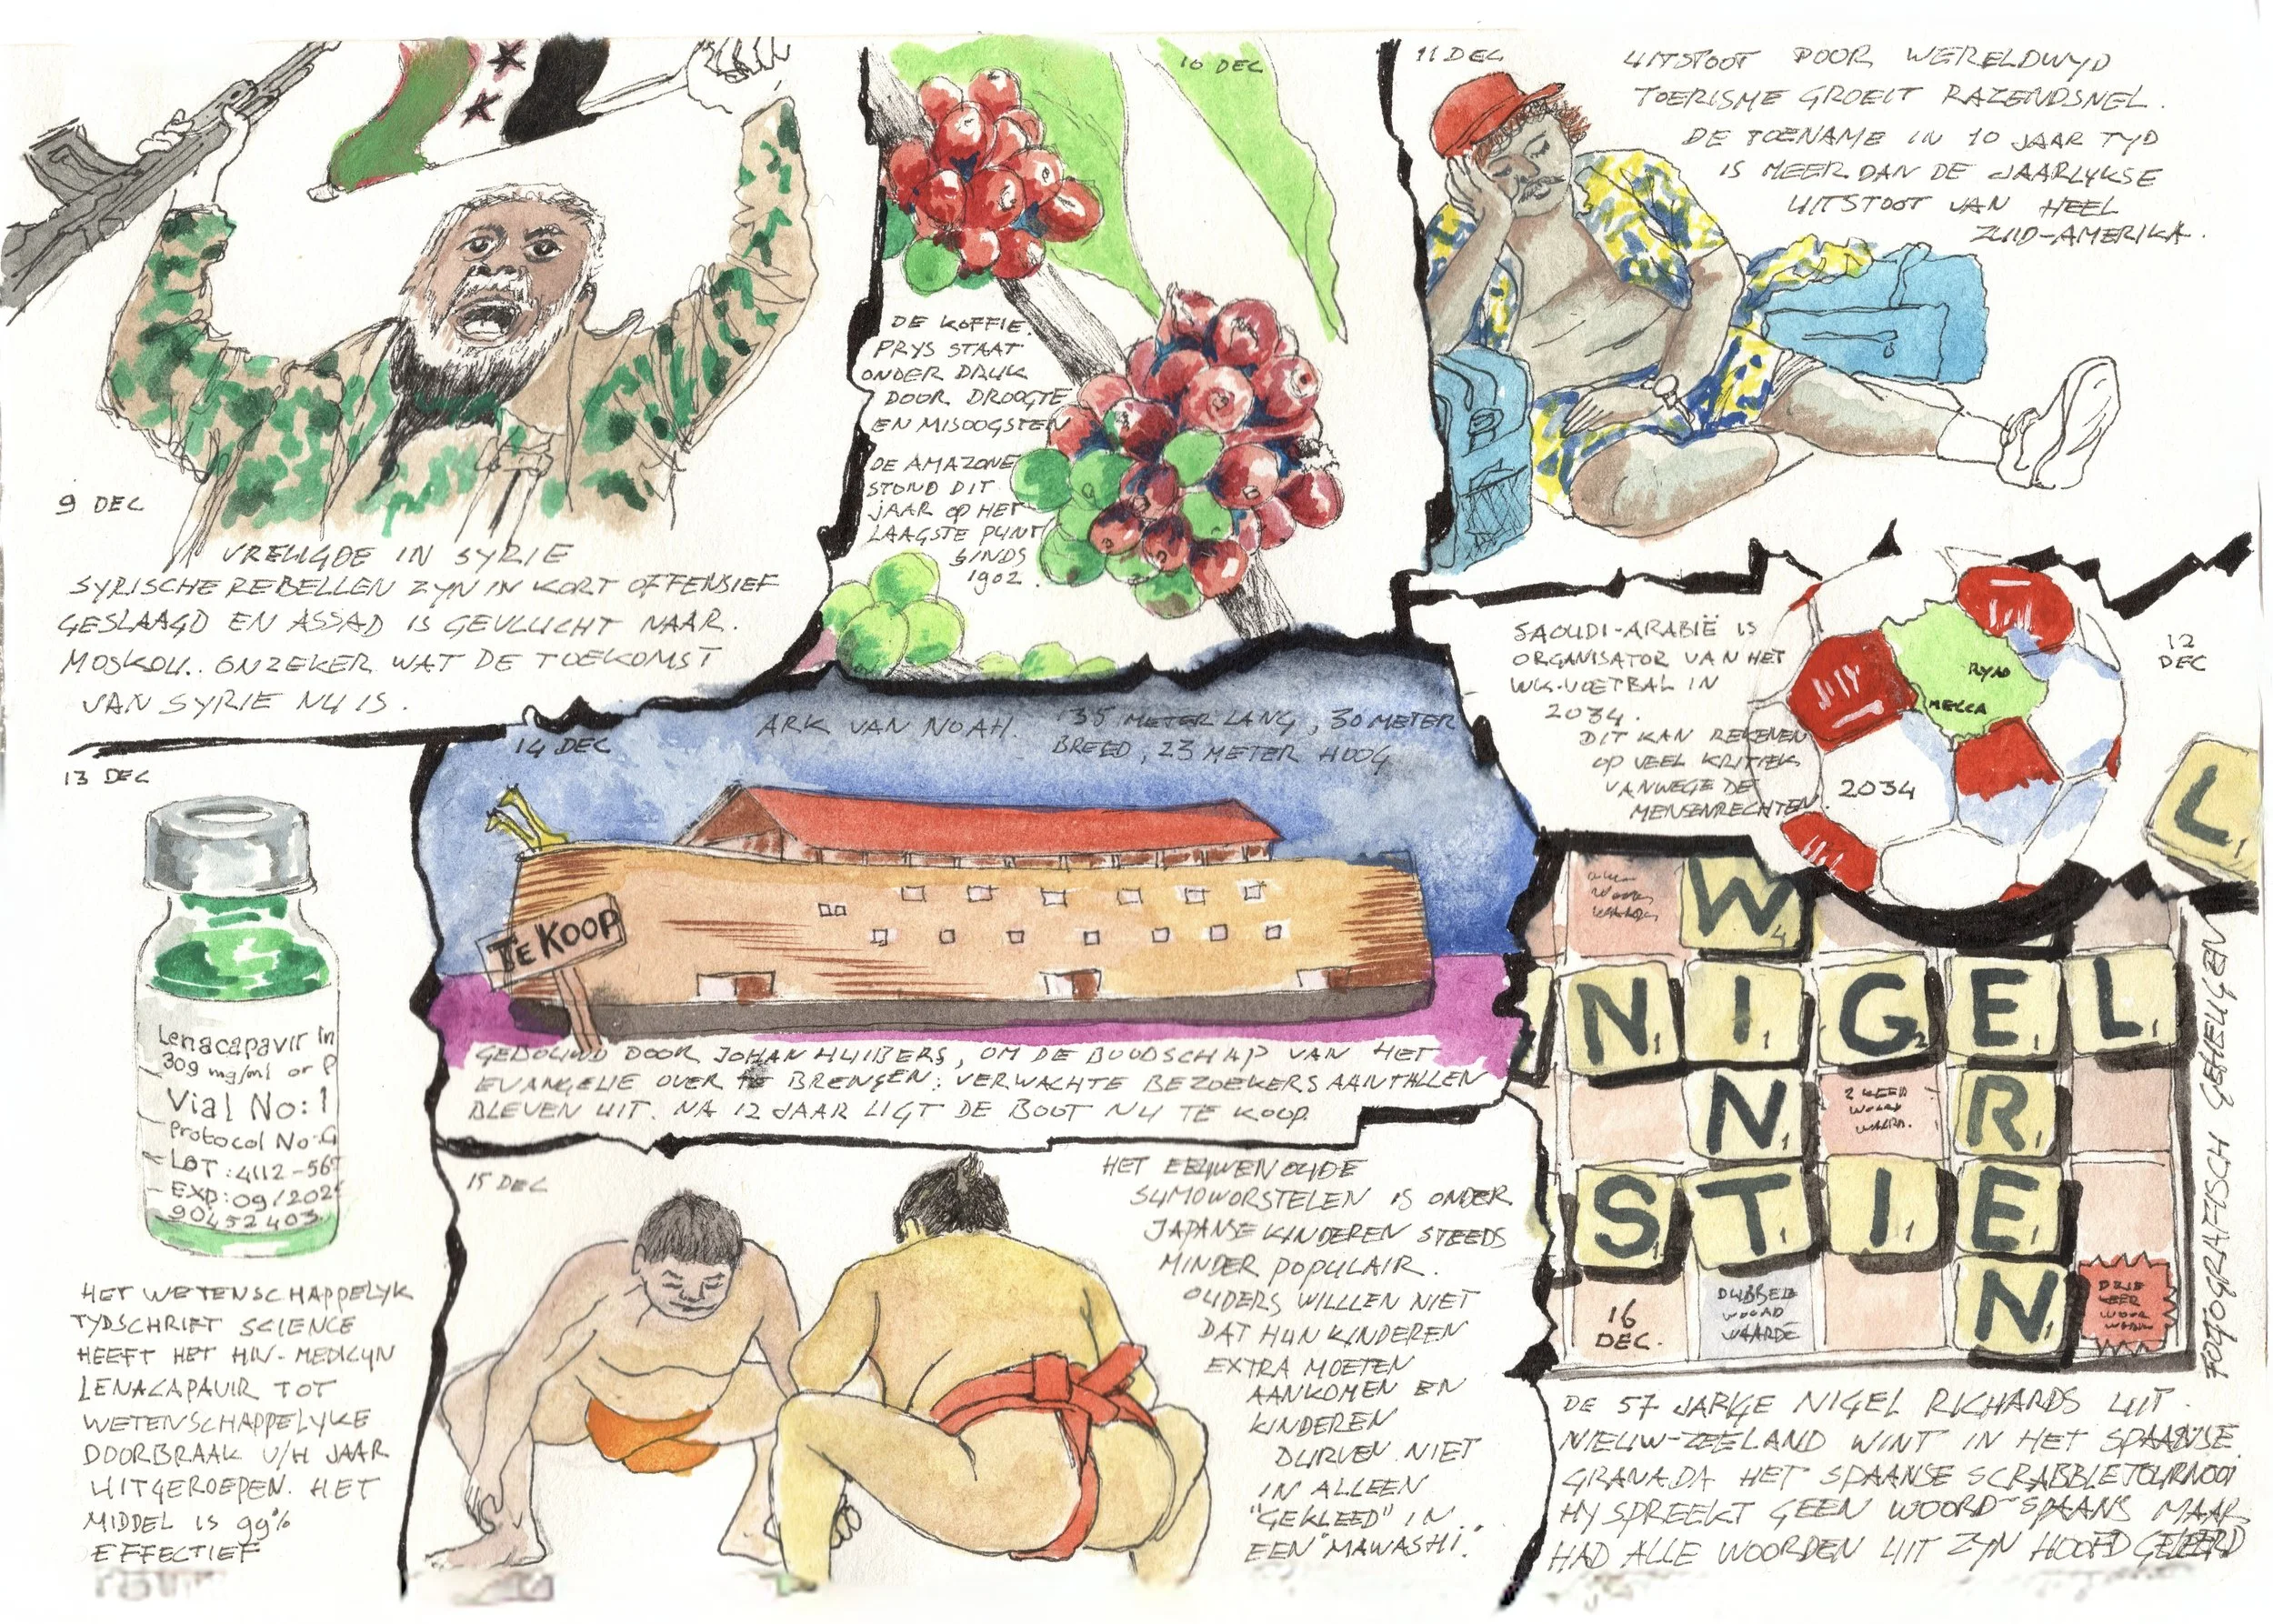 9 DEC
VREUGDE IN SYRIE
SYRISCHE REBELLEN ZYN IN KORT OFFENSIEF
GESLAAGD EN ASSAD IS GEVLUCHT NAAR.
MOSKOU.. ONZEKER WAT DE TOEKOMST
VAN SYRIE NU IS.
10 DEC
DE KOFFIE.
PRYS STAAT
ONDER DRUK
DOOR DROOGTE
EN MISOOGSTEN
DE AMAZONE
STOND DIT
JAAR OP HET
LAAGSTE PUNT
SINDS
1902.
11 DEC
UITSTOOT DOOR WERELDWYD
TOERISME GROEIT RAZENDSNEL.
DE TOENAME IN 10 JAAR TYD
IS MEER DAN DE JAARLYKSE
UITSTOOT VAN HEEL
ZUID-AMERIKA.
SAOUDI-ARABIË IS
ORGANISATOR VAN HET
WK-VOETBAL IN
2034.
DIT KAN REKENEN
OP VEEL KRITIEK
VANWEGE DE
MENSENRECHTEN.
RYAD
MEKKA
2034
12
DEC
13 DEC
Lenacapavir In
309 mg/ml or P
Vial No: 1
Protocol No: G
LOT: 4112-567
EXP: 09/202
90452403
HET WETENSCHAPPELYK
TYDSCHRIFT SCIENCE
HEEFT HET HIV-MEDICYN
LENACAPAVIR TOT
WETENSCHAPPELYKE
DOORBRAAK V/H JAAR
UITGEROEPEN. HET
MIDDEL IS 99%
EFFECTIEF
14 DEC
ARK VAN NOAH. 135 METER LANG, 30 METER
BREED, 23 METER HOOG
TE KOOP
GEBOUWD DOOR JOHAN HUIBERS, OM DE BOODSCHAP VAN HET
EVANGELIE OVER TE BRENGEN. VERWACHTE BEZOEKERSAANTALLEN
BLEVEN UIT. NA 12 JAAR LIGT DE BOOT NU TE KOOP.
15 DEC
HET EEUWENOUDE
SUMOWORSTELEN IS ONDER
JAPANSE KINDEREN STEEDS
MINDER POPULAIR.
OUDERS WILLLEN NIET
DAT HUN KINDEREN
EXTRA MOETEN
AANKOMEN EN
KINDEREN
DURVEN NIET
IN ALLEEN
"GEKLEED" IN
EEN "MAWASHI".
L1
W4
N1 I1 G2 E1 L1
N1 R1
2 KEER
WOORD
WAARDE.
S1 T1 I1 E1
N1
DUBBELE
WOORD
WAARDE
DRIE
KEER
WOORD
16
DEC.
FOTOGRAFISCH GEHEUGEN
DE 57 JARIGE NIGEL RICHARDS UIT
NIEUW-ZEELAND WINT IN HET SPAANSE
GRANADA HET SPAANSE SCRABBLETOURNOOI
HY SPREEKT GEEN WOORD SPAANS MAAR
HAD ALLE WOORDEN UIT ZYN HOOFD GELEERD